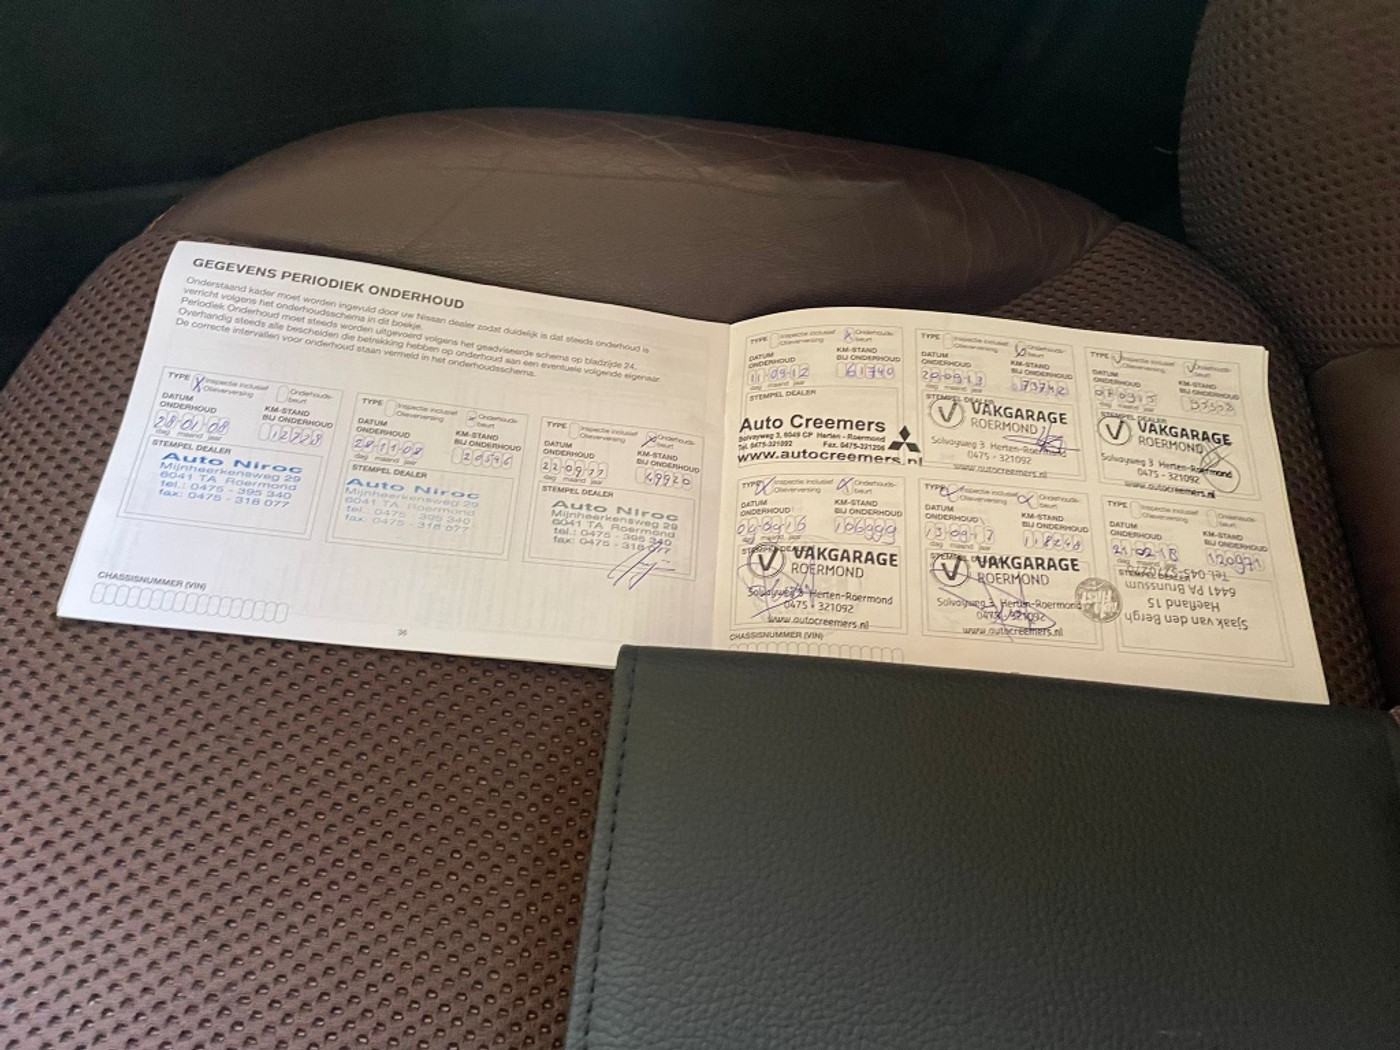 GEGEVENS PERIODIEK ONDERHOUD
Onderstaand kader moet worden ingevuld door uw Nissan dealer zodat duidelijk is dat steeds onderhoud is
verricht volgens het onderhoudsschema in dit boekje.
Periodiek Onderhoud moet steeds worden uitgevoerd volgens het geadviseerde schema op bladzijde 24.
Overhandig steeds alle bescheiden die betrekking hebben op onderhoud aan een eventuele volgende eigenaar.
De correcte intervallen voor onderhoud staan vermeld in het onderhoudsschema.
TYPE X Inspectie inclusief Olieverversing Onderhouds-beurt
DATUM ONDERHOUD KM-STAND BIJ ONDERHOUD
28 01 08 12228
dag maand jaar
STEMPEL DEALER
Auto Niroc
Mijnheerkensweg 29
6041 TA Roermond
tel.: 0475 - 395 340
fax: 0475 - 318 077
TYPE Inspectie inclusief Olieverversing Onderhouds-beurt
DATUM ONDERHOUD KM-STAND BIJ ONDERHOUD
28 11 08 20596
dag maand jaar
STEMPEL DEALER
Auto Niroc
Mijnheerkensweg 29
6041 TA Roermond
tel.: 0475 - 395 340
fax: 0475 - 318 077
TYPE Inspectie inclusief Olieverversing X Onderhouds-beurt
DATUM ONDERHOUD KM-STAND BIJ ONDERHOUD
22 09 49920
dag maand jaar
STEMPEL DEALER
Auto Niroc
Mijnheerkensweg 29
6041 TA Roermond
tel.: 0475 - 395 340
fax: 0475 - 318 077
CHASSISNUMMER (VIN)
TYPE Inspectie inclusief Olieverversing X Onderhouds-beurt
DATUM ONDERHOUD KM-STAND BIJ ONDERHOUD
11 09 12 61740
dag maand jaar
STEMPEL DEALER
Auto Creemers
Solvayweg 3, 6049 CP Herten - Roermond
Tel. 0475-321092 Fax. 0475-321206
www.autocreemers.nl
TYPE Inspectie inclusief Olieverversing Onderhouds-beurt
DATUM ONDERHOUD KM-STAND BIJ ONDERHOUD
20 09 13 73742
dag maand jaar
STEMPEL DEALER
V VAKGARAGE
ROERMOND
Solvayweg 3 Herten-Roermond
0475 - 321092
www.autocreemers.nl
TYPE Inspectie inclusief Olieverversing Onderhouds-beurt
DATUM ONDERHOUD KM-STAND BIJ ONDERHOUD
dag maand jaar
STEMPEL DEALER
V VAKGARAGE
ROERMOND
Solvayweg 3 Herten-Roermond
0475 - 321092
www.autocreemers.nl
TYPE Inspectie inclusief Olieverversing Onderhouds-beurt
DATUM ONDERHOUD KM-STAND BIJ ONDERHOUD
106999
dag maand jaar
STEMPEL DEALER
V VAKGARAGE
ROERMOND
Solvayweg 3 Herten-Roermond
0475 - 321092
www.autocreemers.nl
TYPE Inspectie inclusief Olieverversing Onderhouds-beurt
DATUM ONDERHOUD KM-STAND BIJ ONDERHOUD
13 09 17 118248
dag maand jaar
STEMPEL DEALER
V VAKGARAGE
ROERMOND
Solvayweg 3, Herten-Roermond
0475 - 321092
www.autocreemers.nl
TYPE Inspectie inclusief Olieverversing Onderhouds-beurt
DATUM ONDERHOUD KM-STAND BIJ ONDERHOUD
21 02 18 120971
dag maand jaar
STEMPEL DEALER
Sjaak van den Bergh
Haefland 15
6441 PA Brunssum
CHASSISNUMMER (VIN)